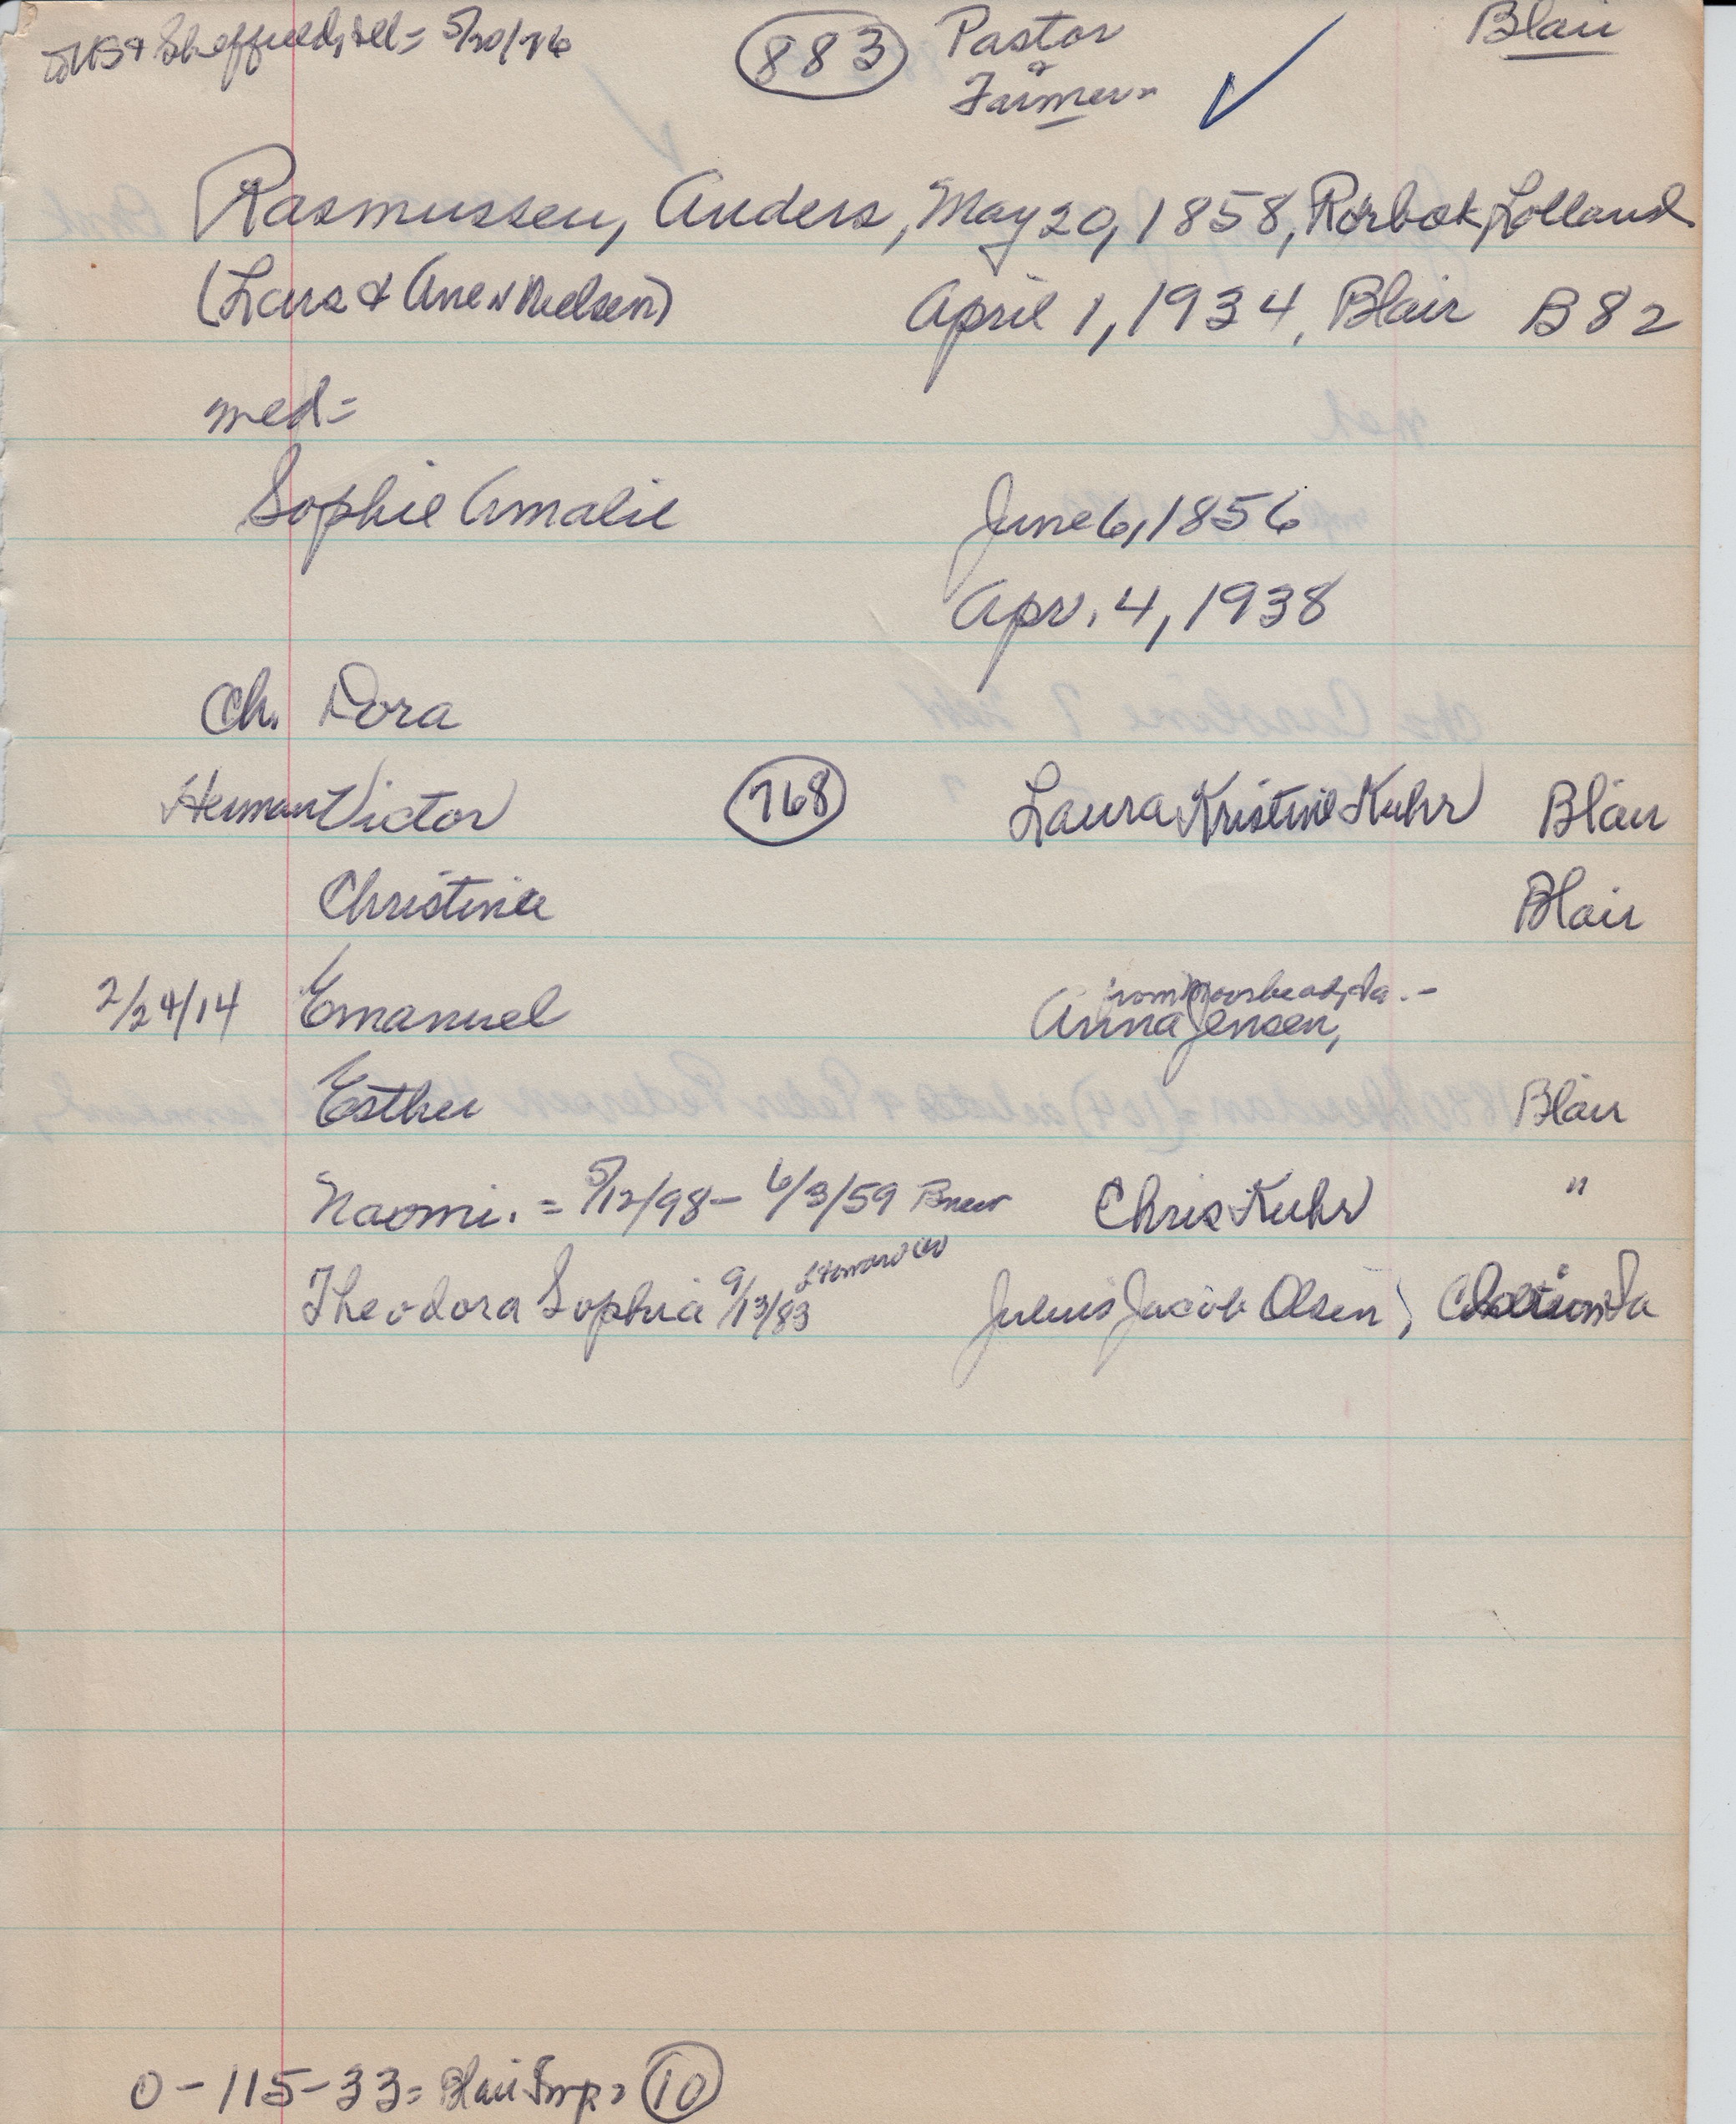 & Sheffield, Ill = 5/20/76
883 Pastor
&
Farmer
Blair
Rasmussen, Anders, May 20, 1858, Rørbæk, Lolland
(Lars & Ane N Nielsen) April 1, 1934, Blair B82
med=
Sophie Amalie June 6, 1856
Apr. 4, 1938
Ch. Dora
Herman Victor 768 Laura Kristine Kuhr Blair
Christine Blair
from Moorhead, Ia. -
2/24/14 Emanuel Anna Jensen,
Esther Blair
Naomi. = 5/12/98 - 6/3/59 Chris Kuhr "
Theodora Sophia 9/13/83 Howard Co Julius Jacob Olsen, Ia
0-115-33= Blair Twp = 10